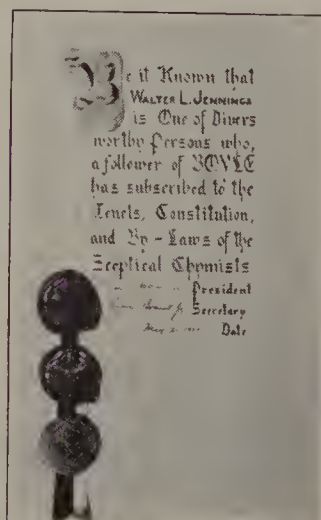 Be it Known that
WALTER L. JENNINGS
is One of Divers
worthy persons who,
a follower of BOYLE
has subscribed to the
Tenets, Constitution,
and By-Laws of the
Sceptical Chymists
President
Secretary
Date